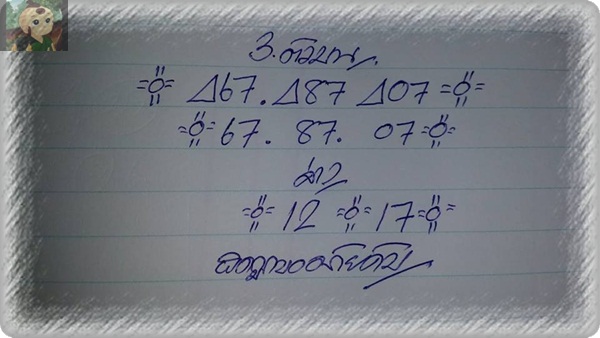 3.ตัวบน
△67. △87 △07
67. 87. 07
ล่าง
12 17